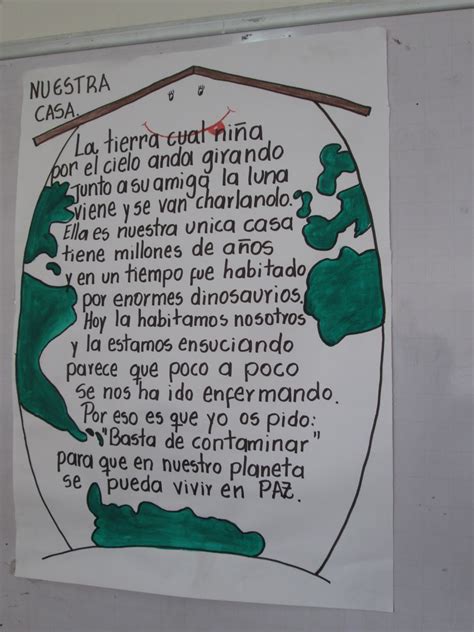 NUESTRA
CASA.
La tierra cual niña
por el cielo anda girando
Junto a su amiga la luna
viene y se van charlanolo.
Ella es nuestra unica casa
tiene millones de años
y en un tiempo fue habitado
por enormes dinosaurios.
Hoy la habitamos nosotros
y la estamos ensuciando
parece que poco a poco
se nos ha ido enfermando.
Por eso es que yo os pido:
"Basta de contaminar"
para que en nuestro planeta
se pueda vivir en PAZ.